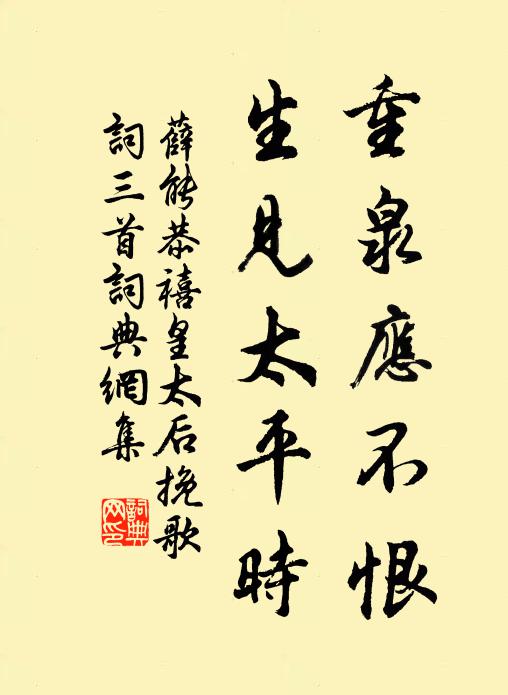 重泉應不恨
生見太平時
薛能恭禧皇太后挽歌
詞三首詞典網集
詞典网印